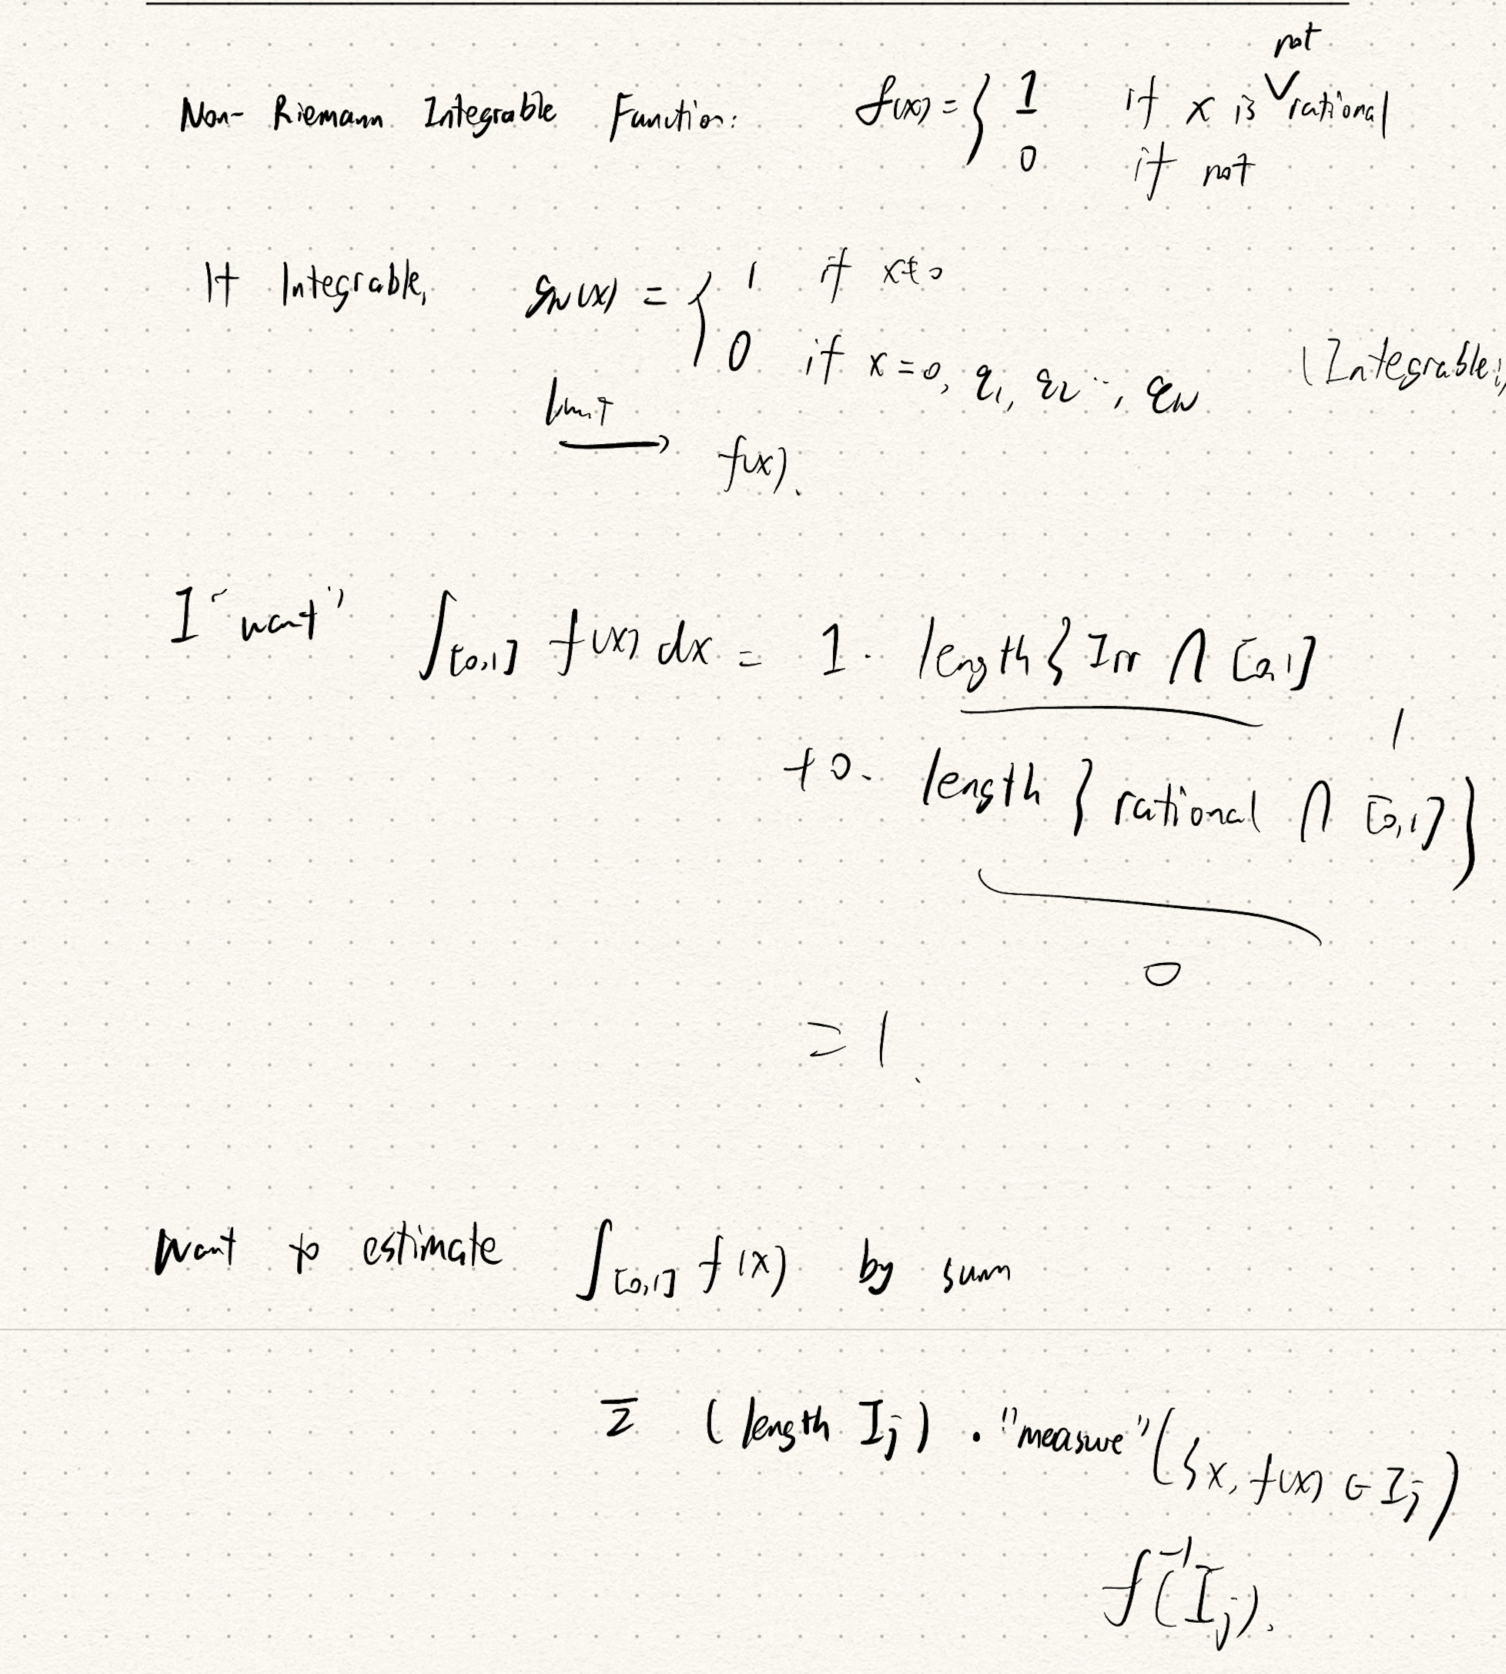 Non-Riemann Integrable Function: f(x) = { 1 if x is not rational
0 if not
If Integrable, g_N(x) = { 1 if x≠0
0 if x=0, q_1, q_2 ..., q_N (Integrable)
limit →
f(x).
I "want" ∫_[0,1] f(x) dx = 1 · length { Irr ∩ [0,1]
1
+0 · length { rational ∩ [0,1] }
0
= 1.
Want to estimate ∫_[0,1] f(x) by sum
Σ (length I_j) · "measure" ({x, f(x) ∈ I_j)
f^{-1}(I_j).